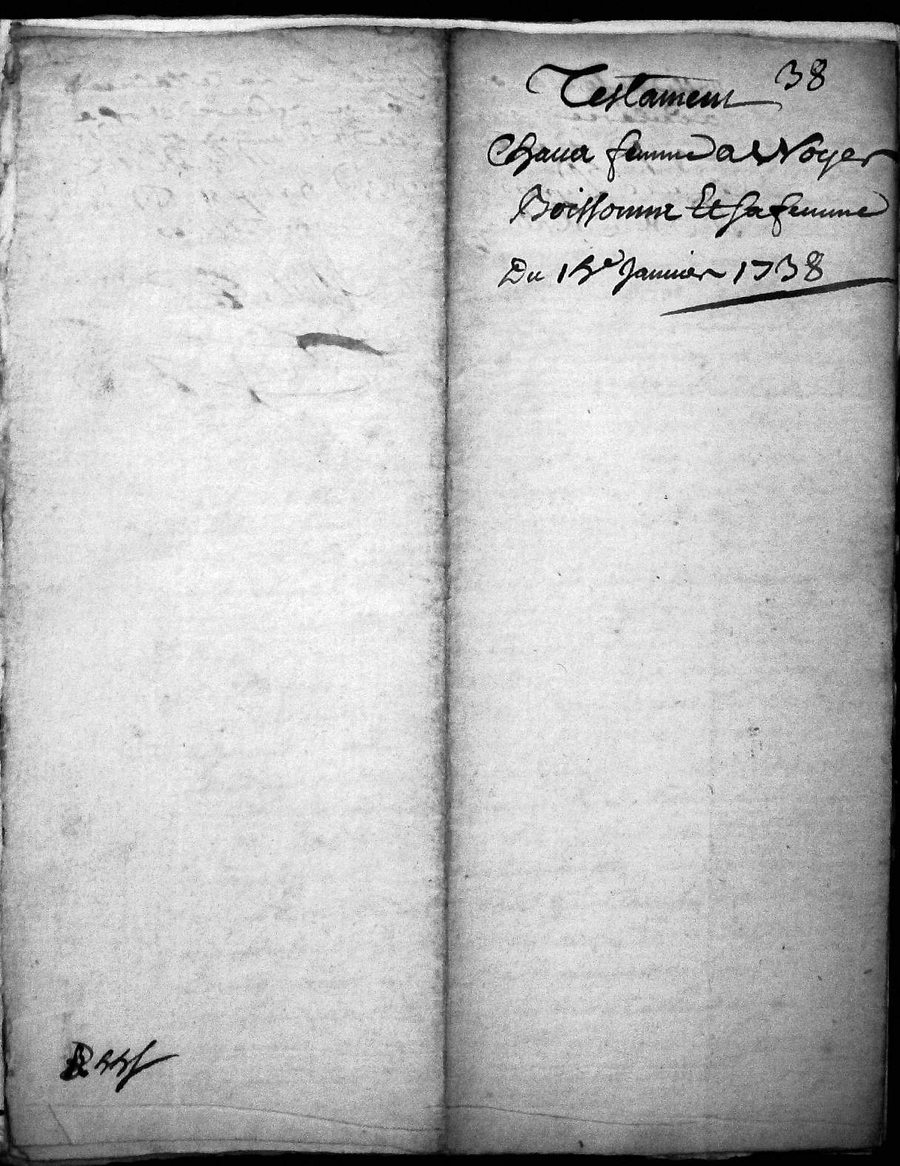 38
Testament
Chaua femme a Noyer
Boissonne Et sa femme
Du 14e Janvier 1738